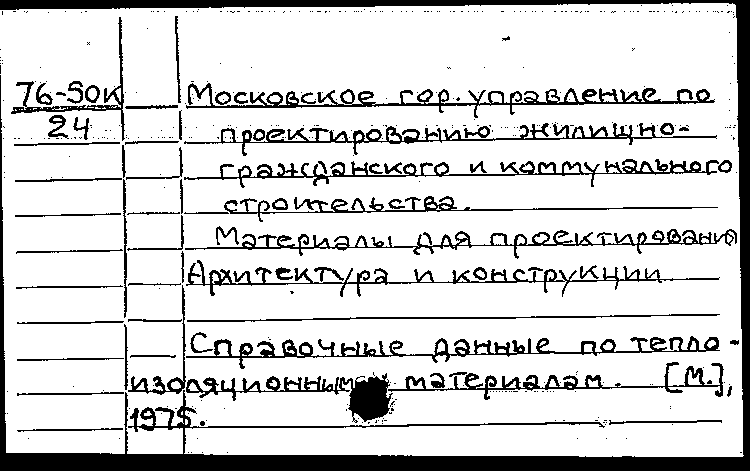 76-50к
24
Московское гор. управление по
проектированию жилищно-
гражданского и коммунального
строительства.
Материалы для проектирования
Архитектура и конструкции
Справочные данные по тепло-
изоляционным материалам. [М.],
1975.